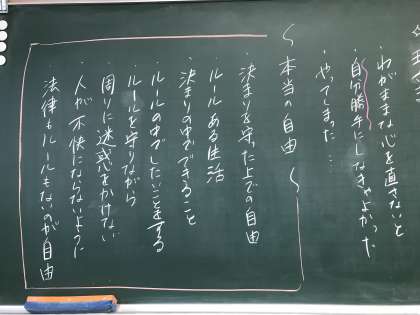 ・わがままな心を直さないと
・自分勝手にしなきゃよかった
・やってしまった…
〜本当の自由〜
・決まりを守った上での自由
・ルールある生活
・決まりの中でできること
・ルールの中でしたいことをする
・ルールを守りながら
・周りに迷惑をかけない
・人が不快にならないように
・法律もルールもないのが自由